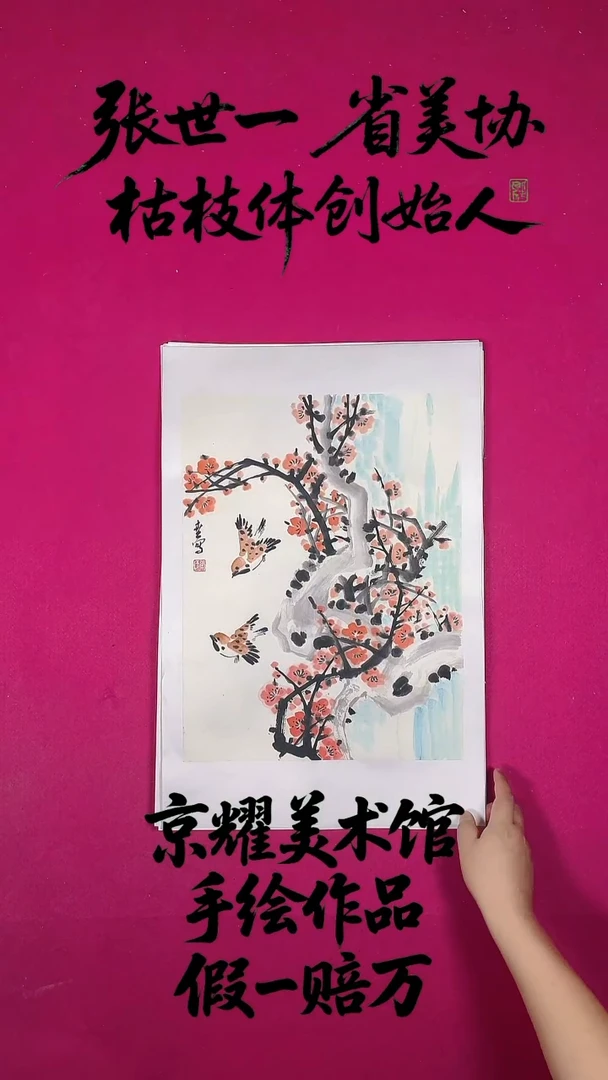 张世一 省美协
枯枝体创始人
京耀美术馆
手绘作品
假一赔万